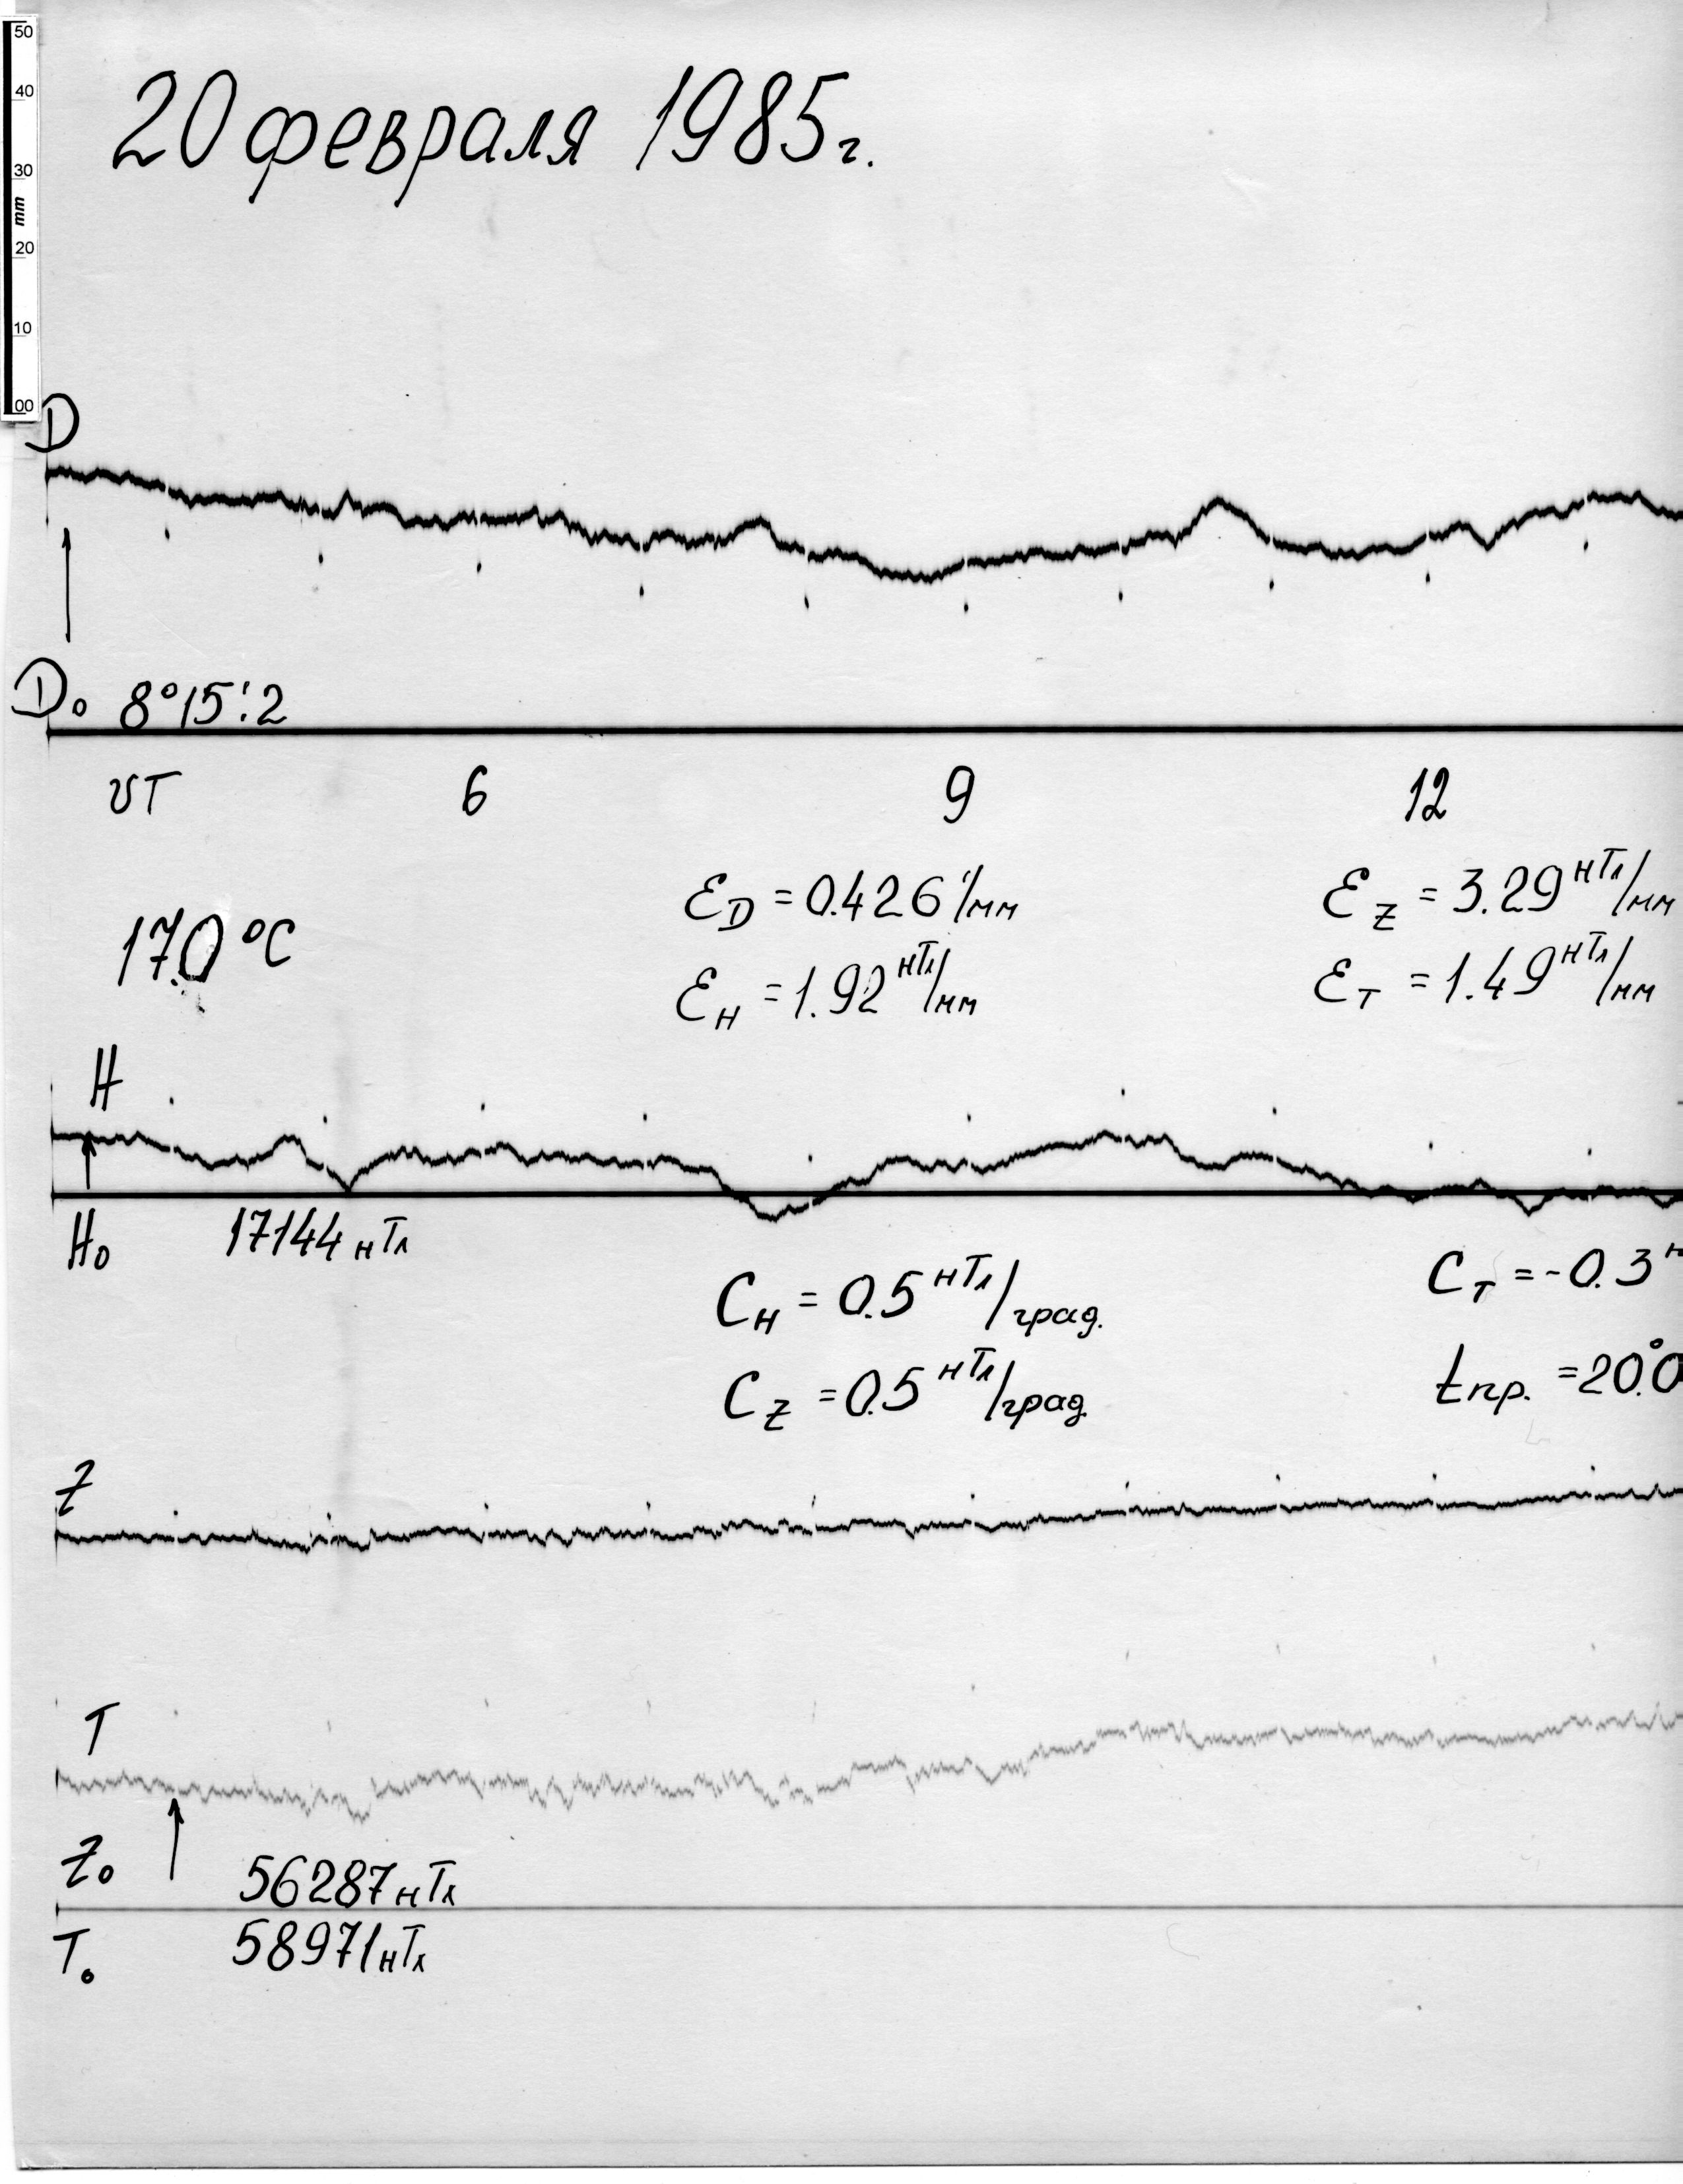 50
40
30
mm
20
10
00
20 февраля 1985г.
D
D₀ 8°15!2
UT 6 9 12
17.0 °C
ε_D = 0.426 '/мм
ε_Z = 3.29 нТл/мм
ε_H = 1.92 нТл/мм
ε_T = 1.49 нТл/мм
H
H₀ 17144 нТл
C_H = 0.5 нТл/град.
C_T = -0.3 н
C_Z = 0.5 нТл/град.
t пр. = 20°.0
Z
T
Z₀ 56287 нТл
T₀ 58971 нТл